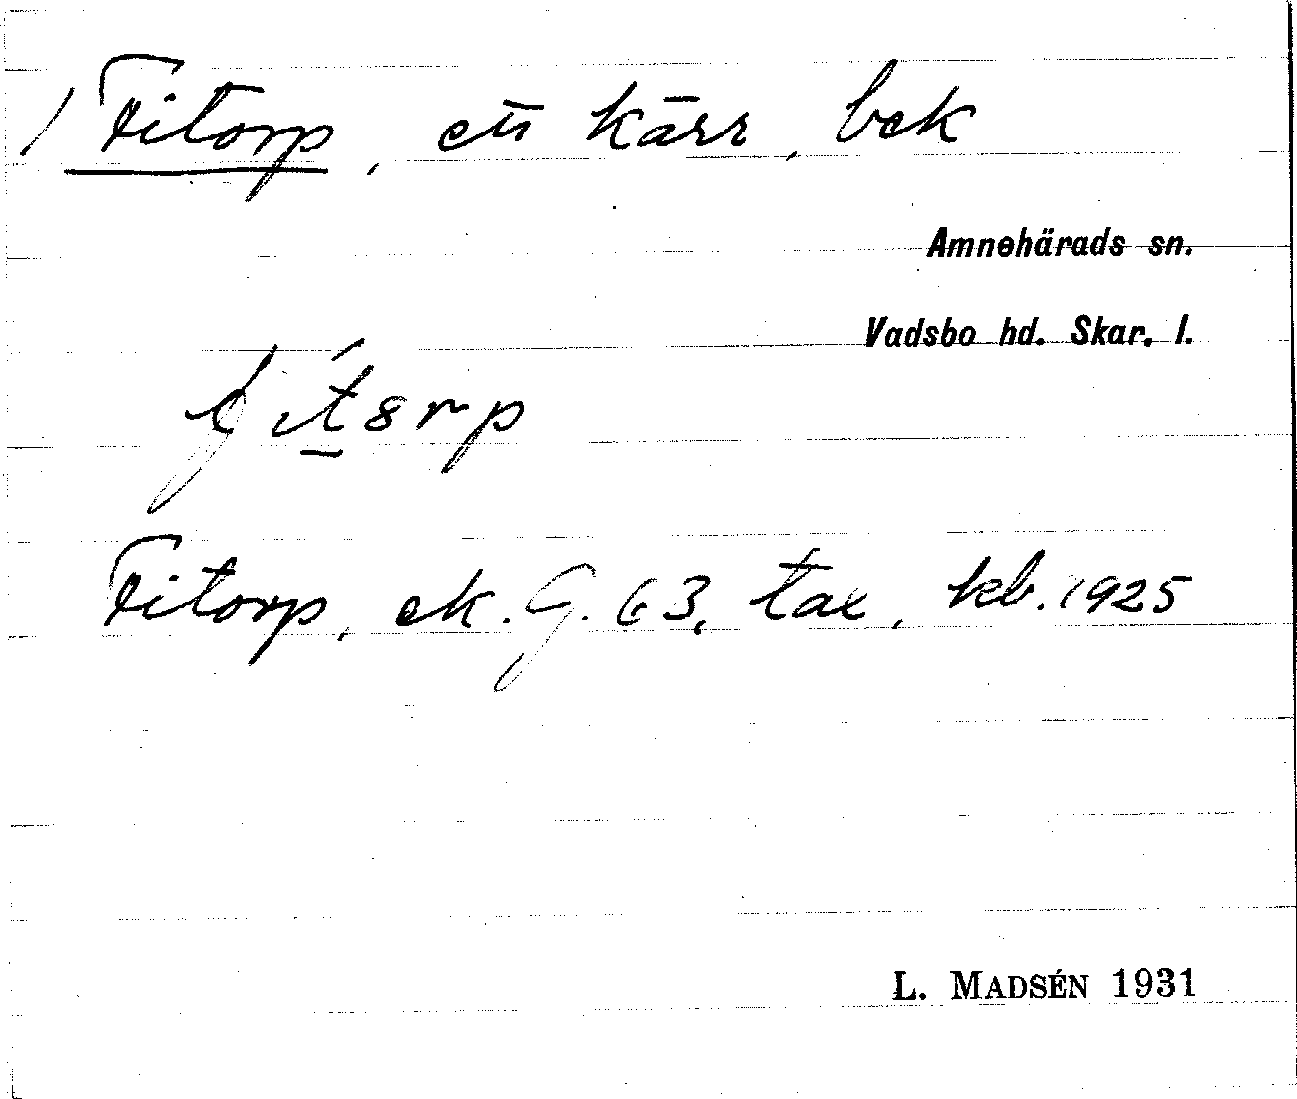 1) Fitorp, ett kärr, bek
Amnehärads sn.
Vadsbo hd. Skar. l.
Fitorp, ek. G. 63, tax, kb. 1925
L. MADSÉN 1931